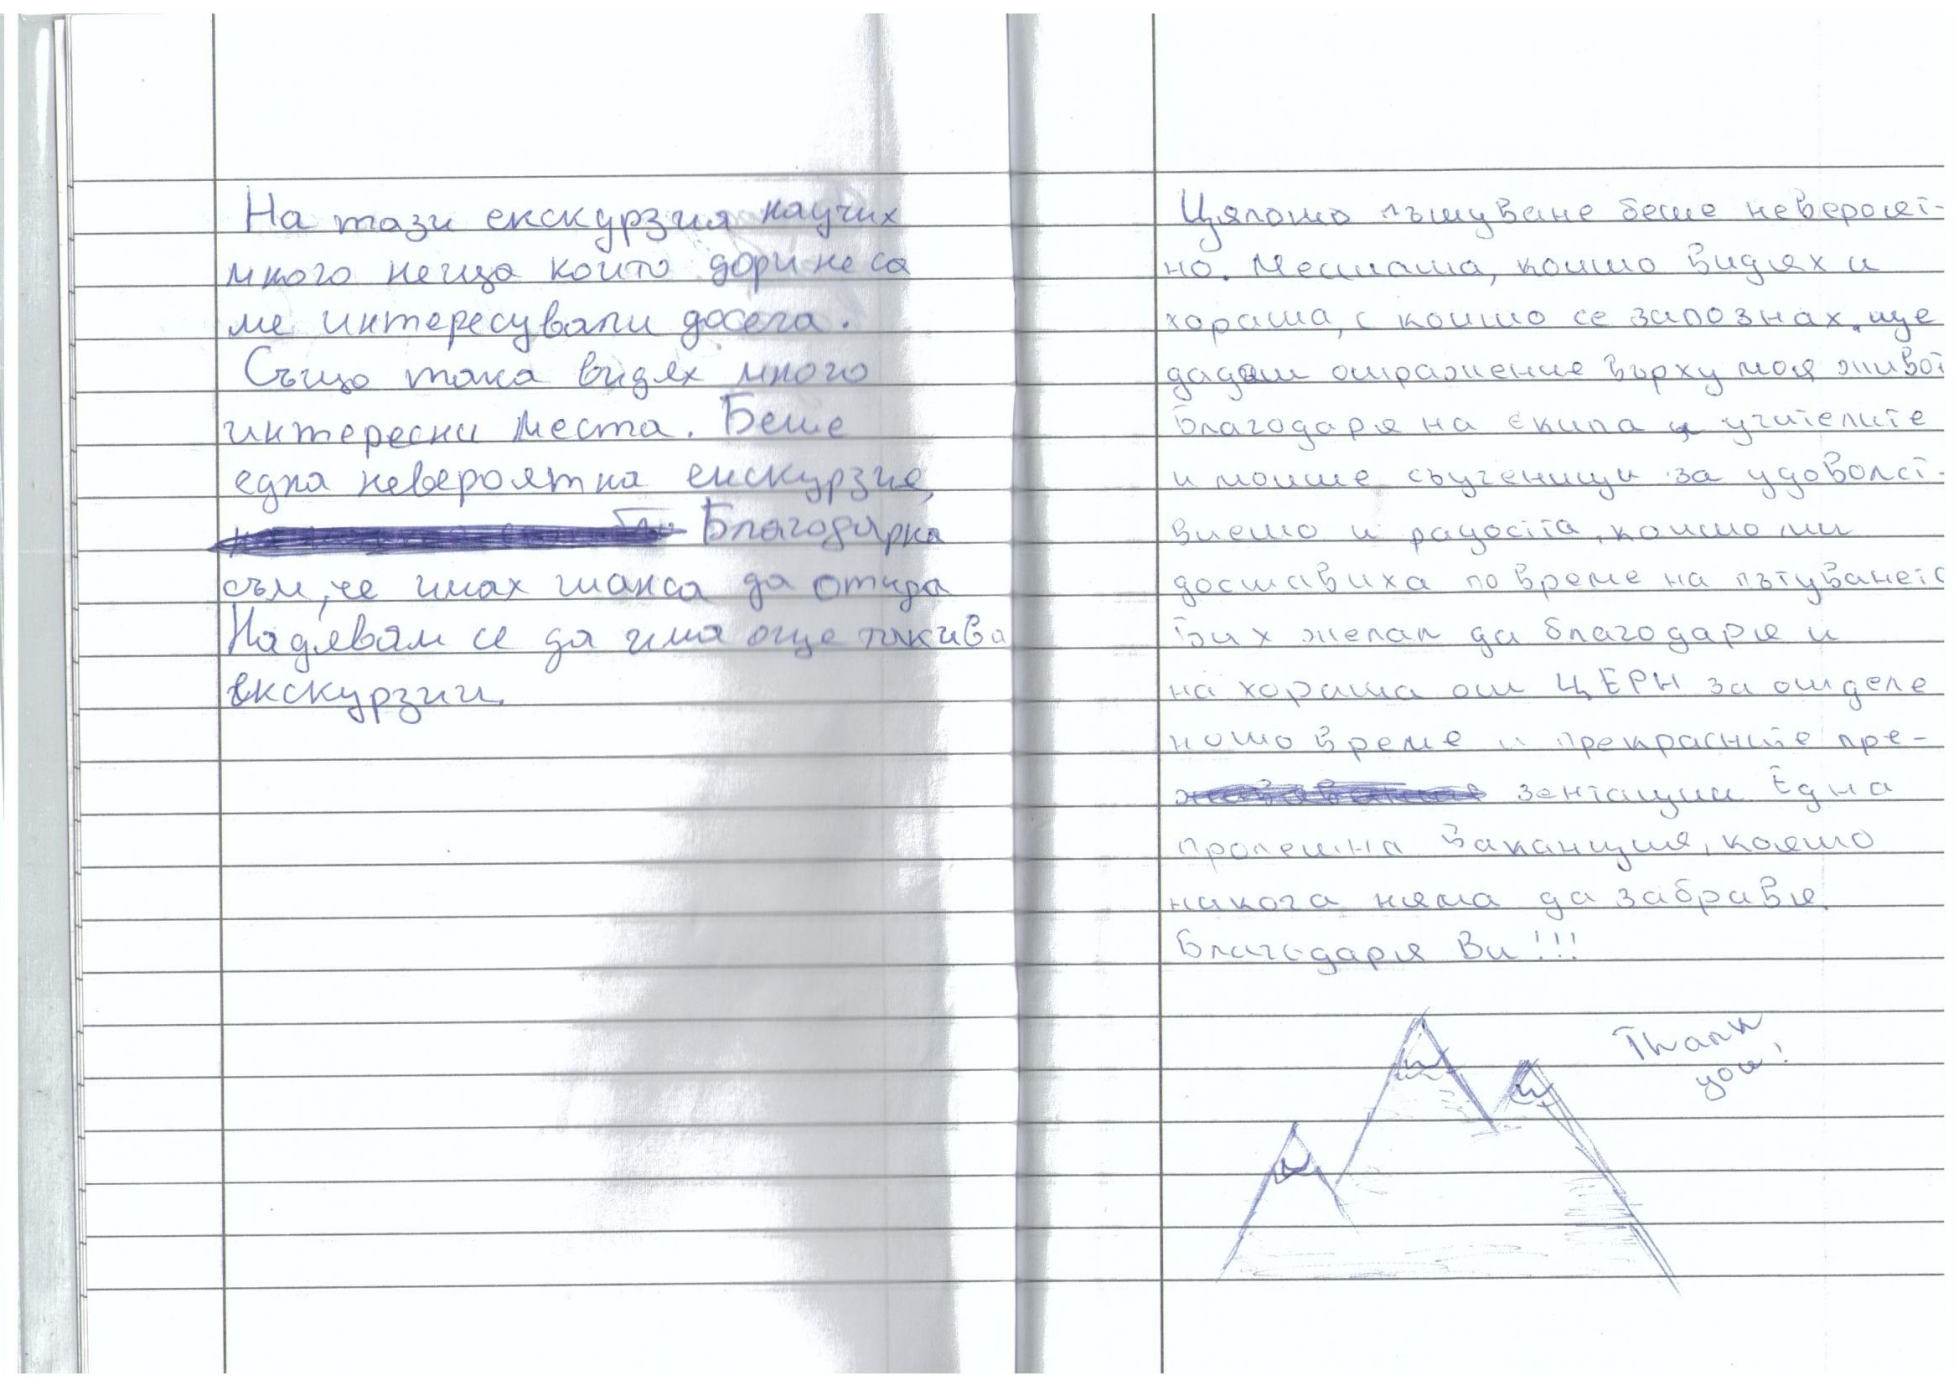 На тази екскурзия научих
много неща които дори не са
ме интересували досега.
Също така видях много
интересни места. Беше
една невероятна екскурзия,
Благодарна
съм, че имах шанса да отида
Надявам се да има още такива
екскурзии.
Цялото пътуване беше невероят-
но. Местата, които видях и
хората, с които се запознах, ще
дадат отражение върху моя живот
Благодаря на екипа и учителите
и моите съученици за удоволст-
вието и радостта, които ми
доставиха по време на пътуването
Бих желал да благодаря и
на хората от ЦЕРН за отделе
ното време и прекрасните пре-
зентации Една
пролетна ваканция, която
никога няма да забравя.
Благодаря Ви!!!
Thank
you!